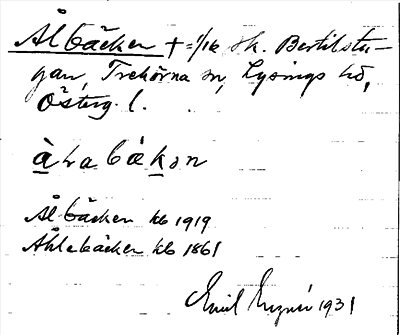 Ålbäcken t = 1/16 sk. Bertilstu-
gan, Trehörna sn, Lysings hd,
Österg. l.
àlabäkɘn
Ålbäcken kb 1919
Åhlebäcken kb 1861
Emil 1931